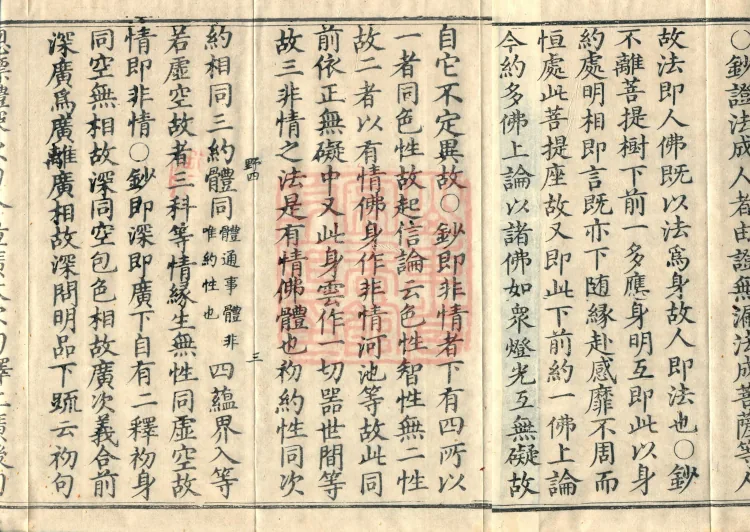 ○鈔證法成人者由證無漏法成菩薩等人
故法即人佛既以法爲身故人即法也○鈔
不離菩提樹下前一多應身明互即此以身
約處明相即言既亦下随緣赴感靡不周而
恒處此菩提座故又即此下前約一佛上論
今約多佛上論以諸佛如衆燈光互無礙故
自它不定異故○鈔即非情者下有四所以
一者同色性故起信論云色性智性無二性
故二者以有情佛身作非情河池等故此同
前依正無礙中又此身雲作一切器世間等
故三非情之法是有情佛體也初約性同次
野四
三
約相同三約體同體通事體非唯約性也四蘊界入等
若虛空故者三科等情緣生無性同虛空故
情即非情○鈔即深即廣下自有二釋初身
同空無相故深同空包色相故廣次義合前
深廣爲廣離廣相故深問明品下䟽云初句